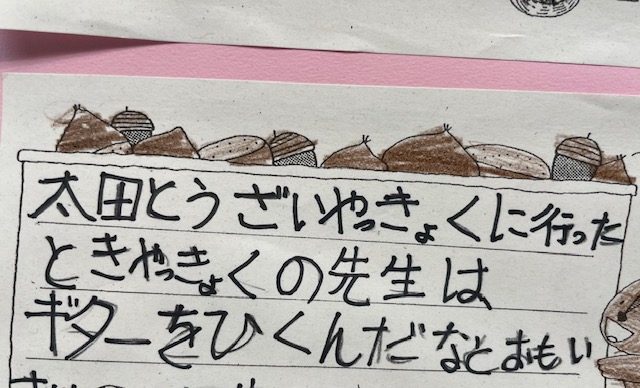 太田とうざいやっきょくに行った
ときやっきょくの先生は
ギターをひくんだなとおもい